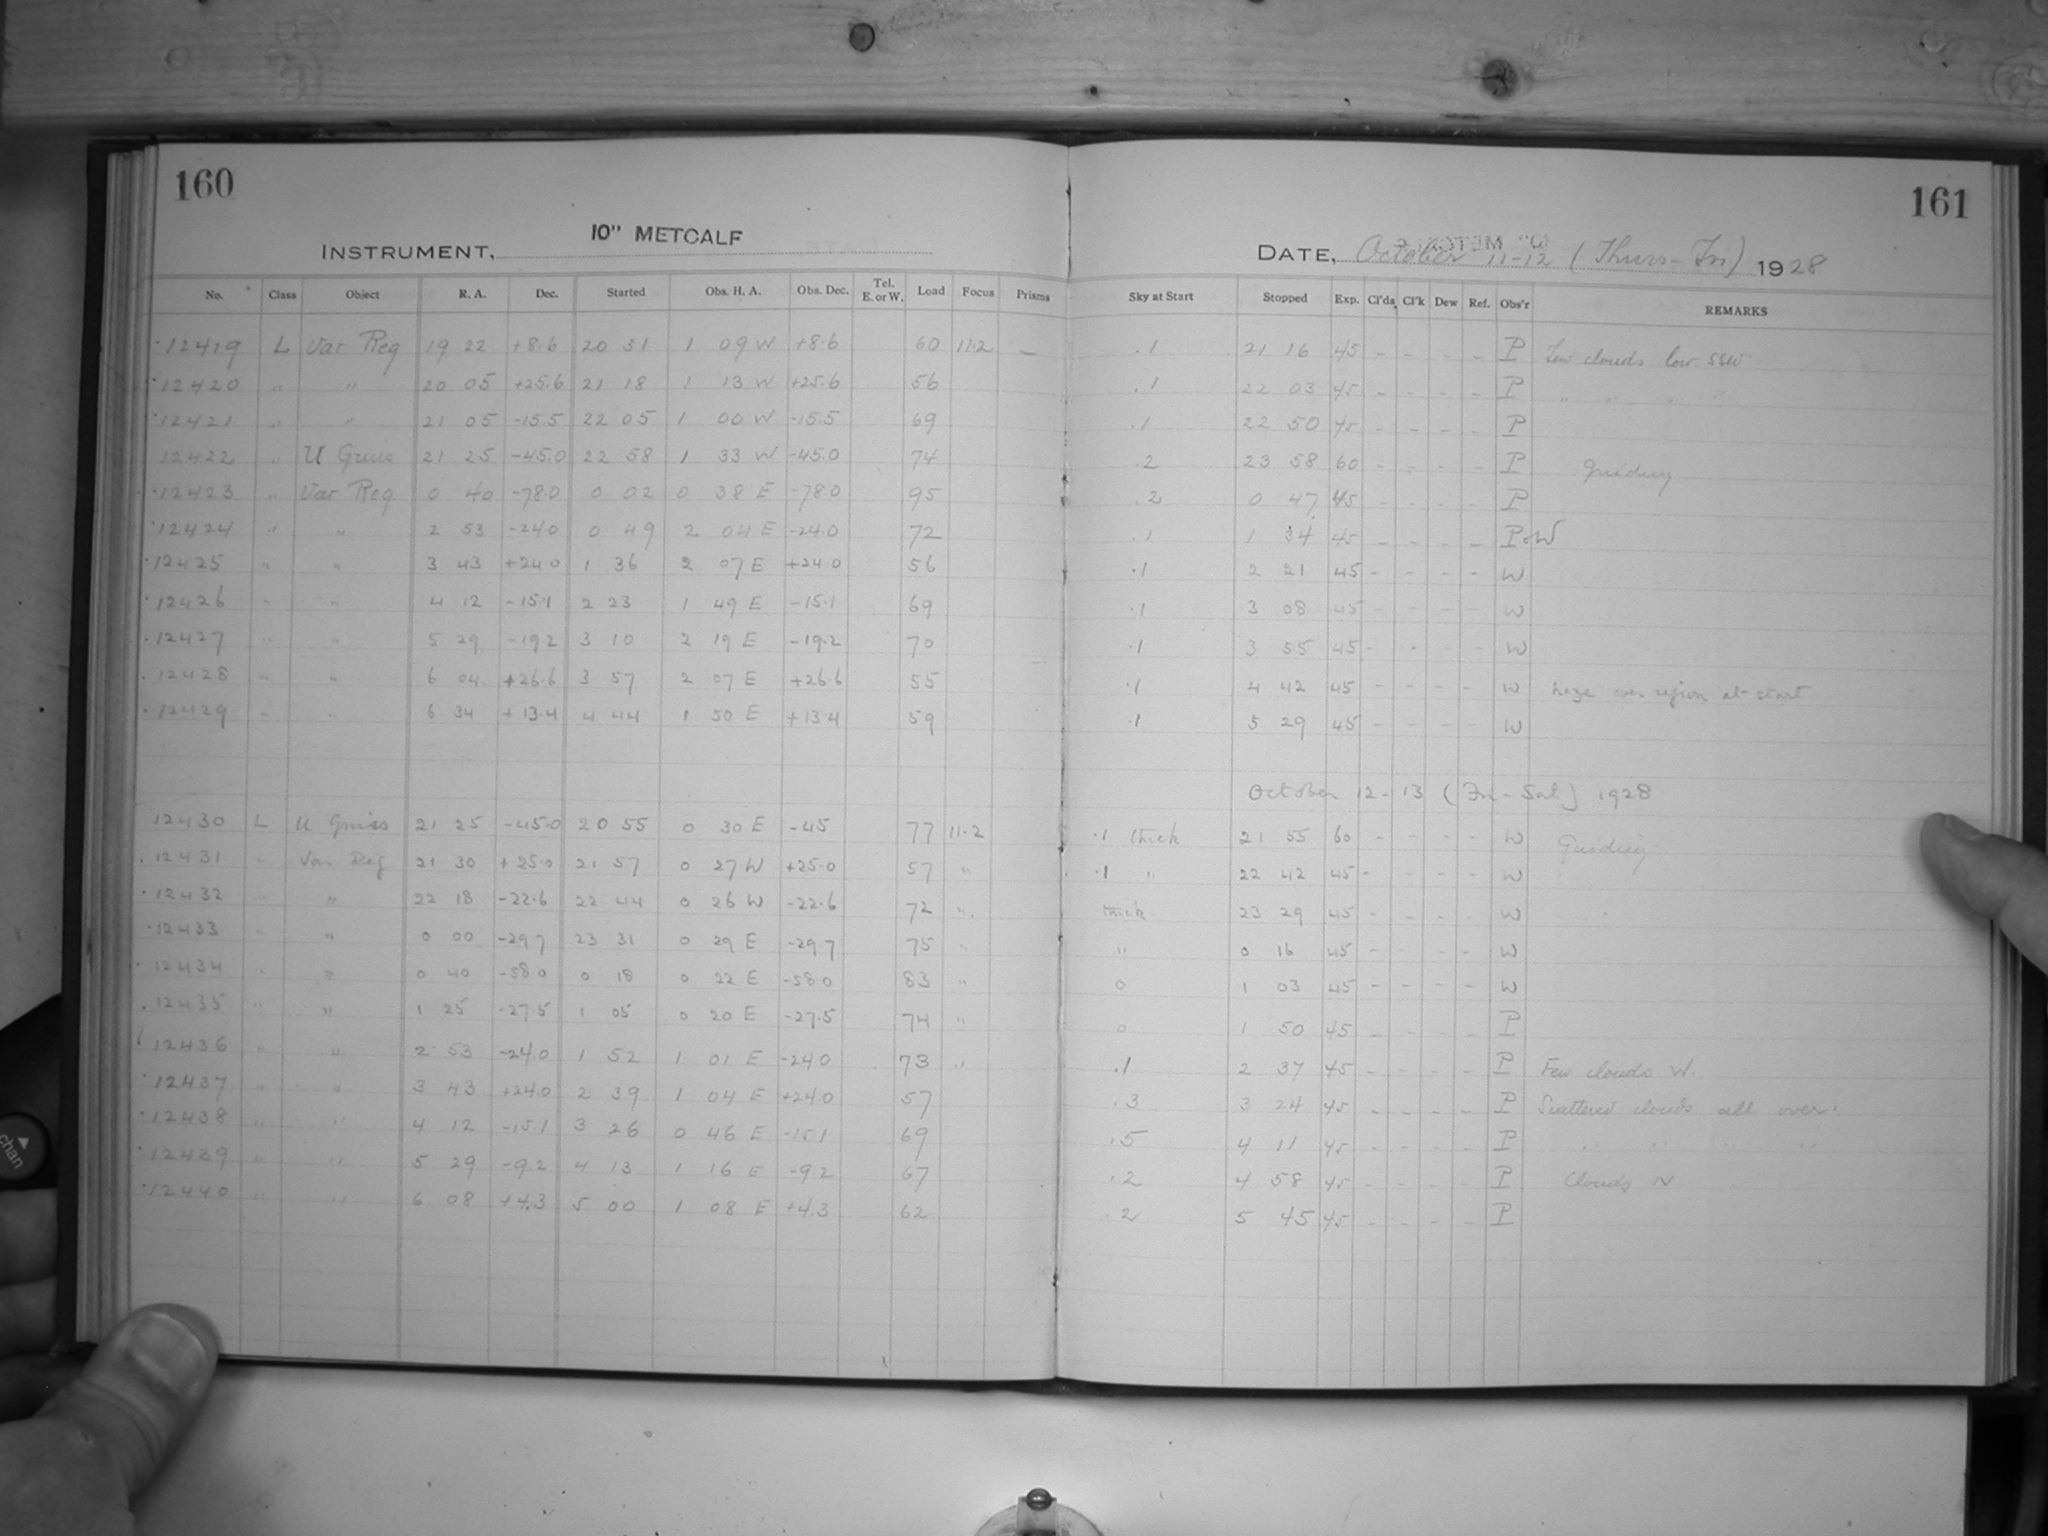 160
161
10" METCALF
INSTRUMENT,
DATE, October 11-12 (Thurs-Fri) 1928
No. Class Object R. A. Dec. Started Obs. H. A. Obs. Dec. Tel. E. or W. Load Focus Prisms Sky at Start Stopped Exp. Cl'ds Cl'k Dew Ref. Obs'r REMARKS
12419 L Var Reg 19 22 +8.6 20 31 1 09 W +8.6 60 11.2 — .1 21 16 45 - - - - P Few clouds low SSW
12420 " " 20 05 +25.6 21 18 1 13 W +25.6 56 .1 22 03 45 - - - - P " " " "
12421 " " 21 05 -15.5 22 05 1 00 W -15.5 69 .1 22 50 45 - - - - P
12422 " U Gruis 21 25 -45.0 22 58 1 33 W -45.0 74 .2 23 58 60 - - - - P Guiding
12423 " Var Reg. 0 40 -78.0 0 02 0 38 E -78.0 95 .2 0 47 45 - - - - P
12424 " " 2 53 -24.0 0 49 2 04 E -24.0 72 .1 1 34 45 - - - - P+W
12425 " " 3 43 +24.0 1 36 2 07 E +24.0 56 .1 2 21 45 - - - - W
12426 " " 4 12 -15.1 2 23 1 49 E -15.1 69 .1 3 08 45 - - - - W
12427 " " 5 29 -19.2 3 10 2 19 E -19.2 70 .1 3 55 45 - - - - W
12428 " " 6 04 +26.6 3 57 2 07 E +26.6 55 .1 4 42 45 - - - - W haze over region at start
12429 " " 6 34 +13.4 4 44 1 50 E +13.4 59 .1 5 29 45 - - - - W
October 12-13 (Fri-Sat) 1928
12430 L U Gruis 21 25 -45.0 20 55 0 30 E -45 77 11.2 .1 thick 21 55 60 - - - - W Guiding
12431 " Var Reg 21 30 +25.0 21 57 0 27 W +25.0 57 " .1 " 22 42 45 - - - - W
12432 " " 22 18 -22.6 22 44 0 26 W -22.6 72 " thick 23 29 45 - - - - W
12433 " " 0 00 -29.7 23 31 0 29 E -29.7 75 " " 0 16 45 - - - - W
12434 " " 0 40 -58.0 0 18 0 22 E -58.0 83 " 0 1 03 45 - - - - W
12435 " " 1 25 -27.5 1 05 0 20 E -27.5 74 " 0 1 50 45 - - - - P
12436 " " 2 53 -24.0 1 52 1 01 E -24.0 73 " .1 2 37 45 - - - - P Few clouds W.
12437 " " 3 43 +24.0 2 39 1 04 E +24.0 57 .3 3 24 45 - - - - P Scattered clouds all over.
12438 " " 4 12 -15.1 3 26 0 46 E -15.1 69 .5 4 11 45 - - - - P " " " "
12439 " " 5 29 -9.2 4 13 1 16 E -9.2 67 .2 4 58 45 - - - - P Clouds N
12440 " " 6 08 +4.3 5 00 1 08 E +4.3 62 .2 5 45 45 - - - - P